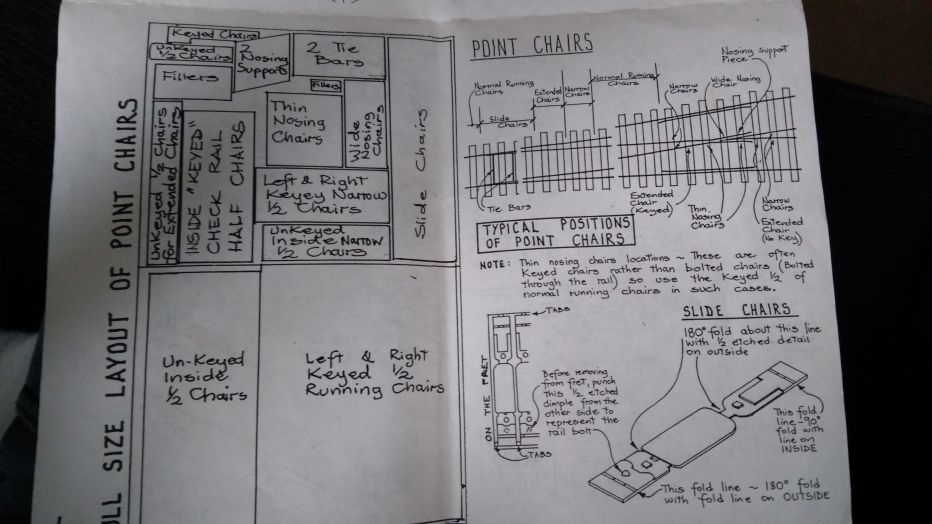 ULL SIZE LAYOUT OF POINT CHAIRS
Keyed Chairs
UnKeyed
1/2 Chairs
2
Nosing
Supports
2 Tie
Bars
Fillers
Fillers
Thin
Nosing
Chairs
Wide
Nosing
Chairs
Slide Chairs
UnKeyed 1/2 Chairs
for Extended Chairs
INSIDE "KEYED"
CHECK RAIL
HALF CHAIRS
Left & Right
Keyey Narrow
1/2 Chairs
UnKeyed
Inside Narrow
1/2 Chairs
Un-Keyed
Inside
1/2 Chairs
Left & Right
Keyed 1/2
Running Chairs
POINT CHAIRS
Nosing Support
Piece
Normal Running
Chairs
Extended
Chairs
Narrow
Chairs
Normal Running
Chairs
Narrow
Chairs
Wide Nosing
Chair
Slide
Chairs
Tie Bars
Extended
Chair
(Keyed)
Thin
Nosing
Chairs
Narrow
Chairs
Extended
Chair
(No Key)
TYPICAL POSITIONS
OF POINT CHAIRS
NOTE: Thin nosing chairs locations ~ These are often
Keyed chairs rather than bolted chairs (Bolted
through the rail) so use the Keyed 1/2 of
normal running chairs in such cases.
SLIDE CHAIRS
TABS
ON THE FRET
TABS
180° fold about this line
with 1/2 etched detail
on outside
Before removing
from fret, punch
this 1/2 etched
dimple from the
other side to
represent the
rail bolt
This fold
line ~ 90°
fold with
line on
INSIDE
This fold line ~ 180° fold
with fold line on OUTSIDE